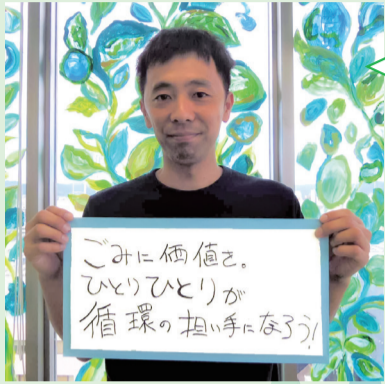 ごみに価値を。
ひとりひとりが
循環の担い手になろう!